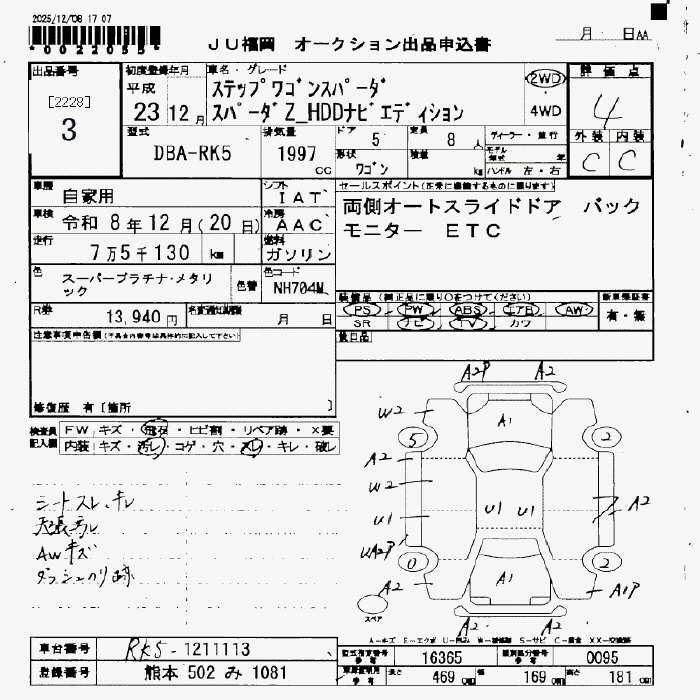 2025/12/08 17 07
*0022055*
JU福岡 オークション出品申込書
月 日AA
出品番号
[2228]
3
初度登録年月
平成
23 12月
車名・グレード
ステップワゴンスパーダ
スパーダZ_HDDナビエディション
2WD
4WD
評価点
4
外装 内装
C C
型式
DBA-RK5
排気量
1997
CC
ドア
5
定員
8
人
形状
ワゴン
積載
kg
ディーラー・並行
モデル
年式
年
ハンドル 左・右
車歴
自家用
シフト
IAT
車検
令和 8年12月(20日)
冷房
AAC
走行
7万5千130 km
燃料
ガソリン
色
スーパープラチナ・メタリ
ック
色替
色コード
NH704M
R券
13,940円
名変通知期限
月 日
セールスポイント(正常に機能するものに限ります)
両側オートスライドドア バック
モニター ETC
装備品(純正品に限り○をつけてください)
PS PW ABS エアB AW
SR ナビ TV カワ
新車保証書
有・無
後日品
注意事項申告欄
修復歴 有[箇所 ]
検査員
記入欄
FW キズ・飛石・ヒビ割・リペア跡・X要
内装 キズ・汚レ・コゲ・穴・スレ・キレ・破レ
シートスレ、キレ
天張汚レ
AWキズ
ダッシュのり跡
A2P A2
W2 A1
5 2
A2
W2
U1 U1 U1 A2
UA2P
0 2
A2 A1 A1P
スペア
A2 A2
A-キズ E-エクボ U-凹み W-補修跡 S-サビ C-腐食 XX-交換跡
車台番号
RK5-1211113
登録番号
熊本 502 み 1081
型式指定番号
参考
16365
類別区分番号
参考
0095
参考
長さ
469 cm
幅
169 cm
高さ
181 cm